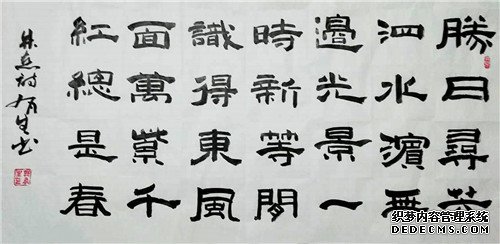 勝日尋芳
泗水濱無
邊光景一
時新等閒
識得東風
面萬紫千
紅總是春
朱熹诗 有生书
织梦内容管理系统
DEDECMS.COM